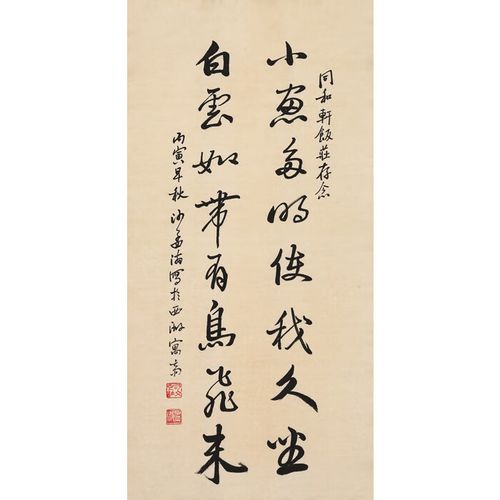 同和軒飯莊存念
小窗多明使我久坐
白雲如帶有鳥飛來
丙寅早秋沙孟海寫於西湖寓齋